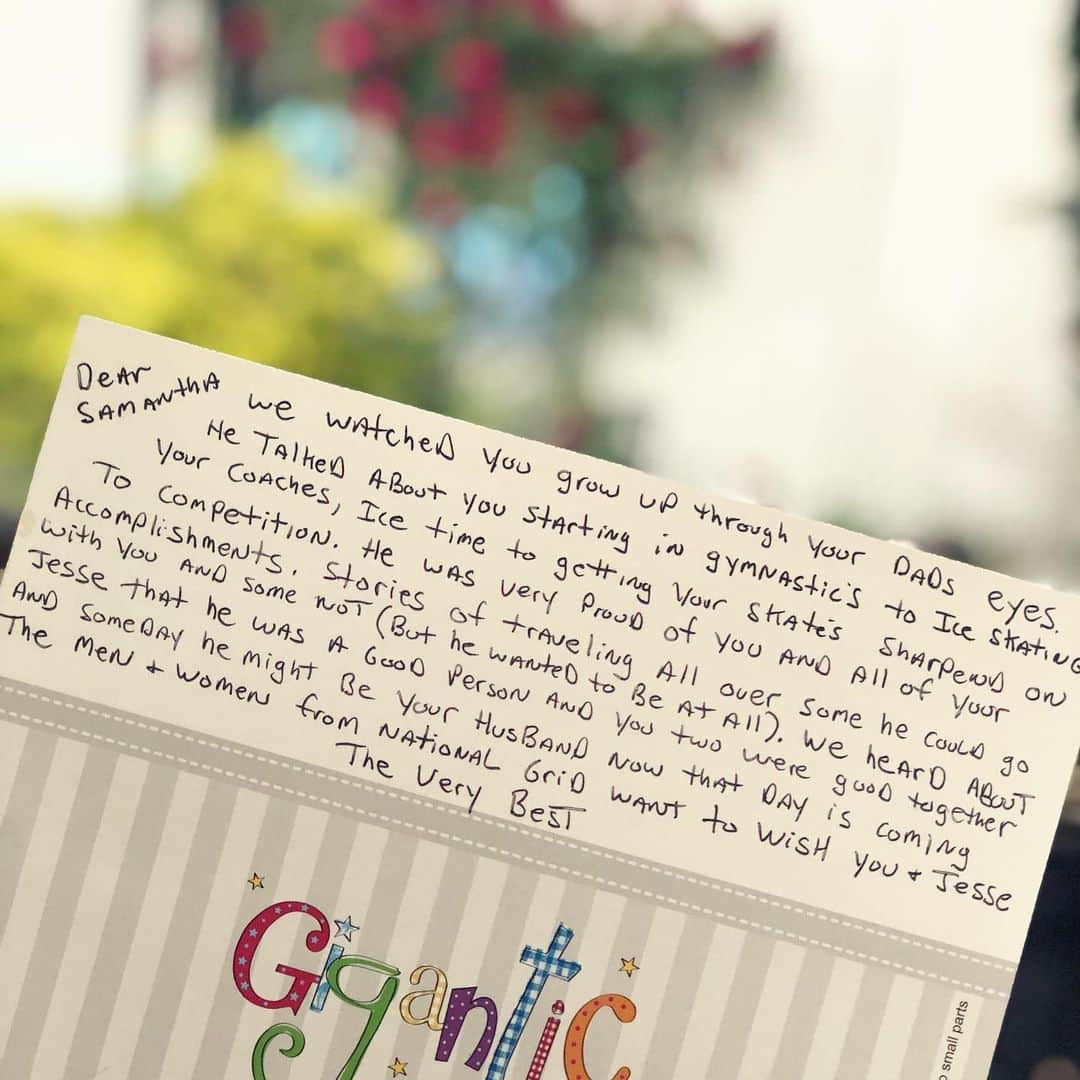 DeAr
SAMANthA we wAtcheD you grow up through your DADs eyes.
He TAlkeD ABout you stArting in gymNAstic's to Ice skAtiNG
your CoAches, Ice time to getting your skAte's shArpewD on
To competition. He wAs very prouD of you AND All of your
Accomplishments. Stories of trAveling All over some he coulD go
with you AND some NoT (But he wANteD to Be At All). We heArD ABouT
Jesse thAt he wAs A GooD person AND you two were gooD together
AND someDAy he might Be your HusBAND Now thAt DAy is coming
The MeN + womeN from NATioNAL GriD wANT to wisH you + Jesse
The very BesT
Gigantic
small parts